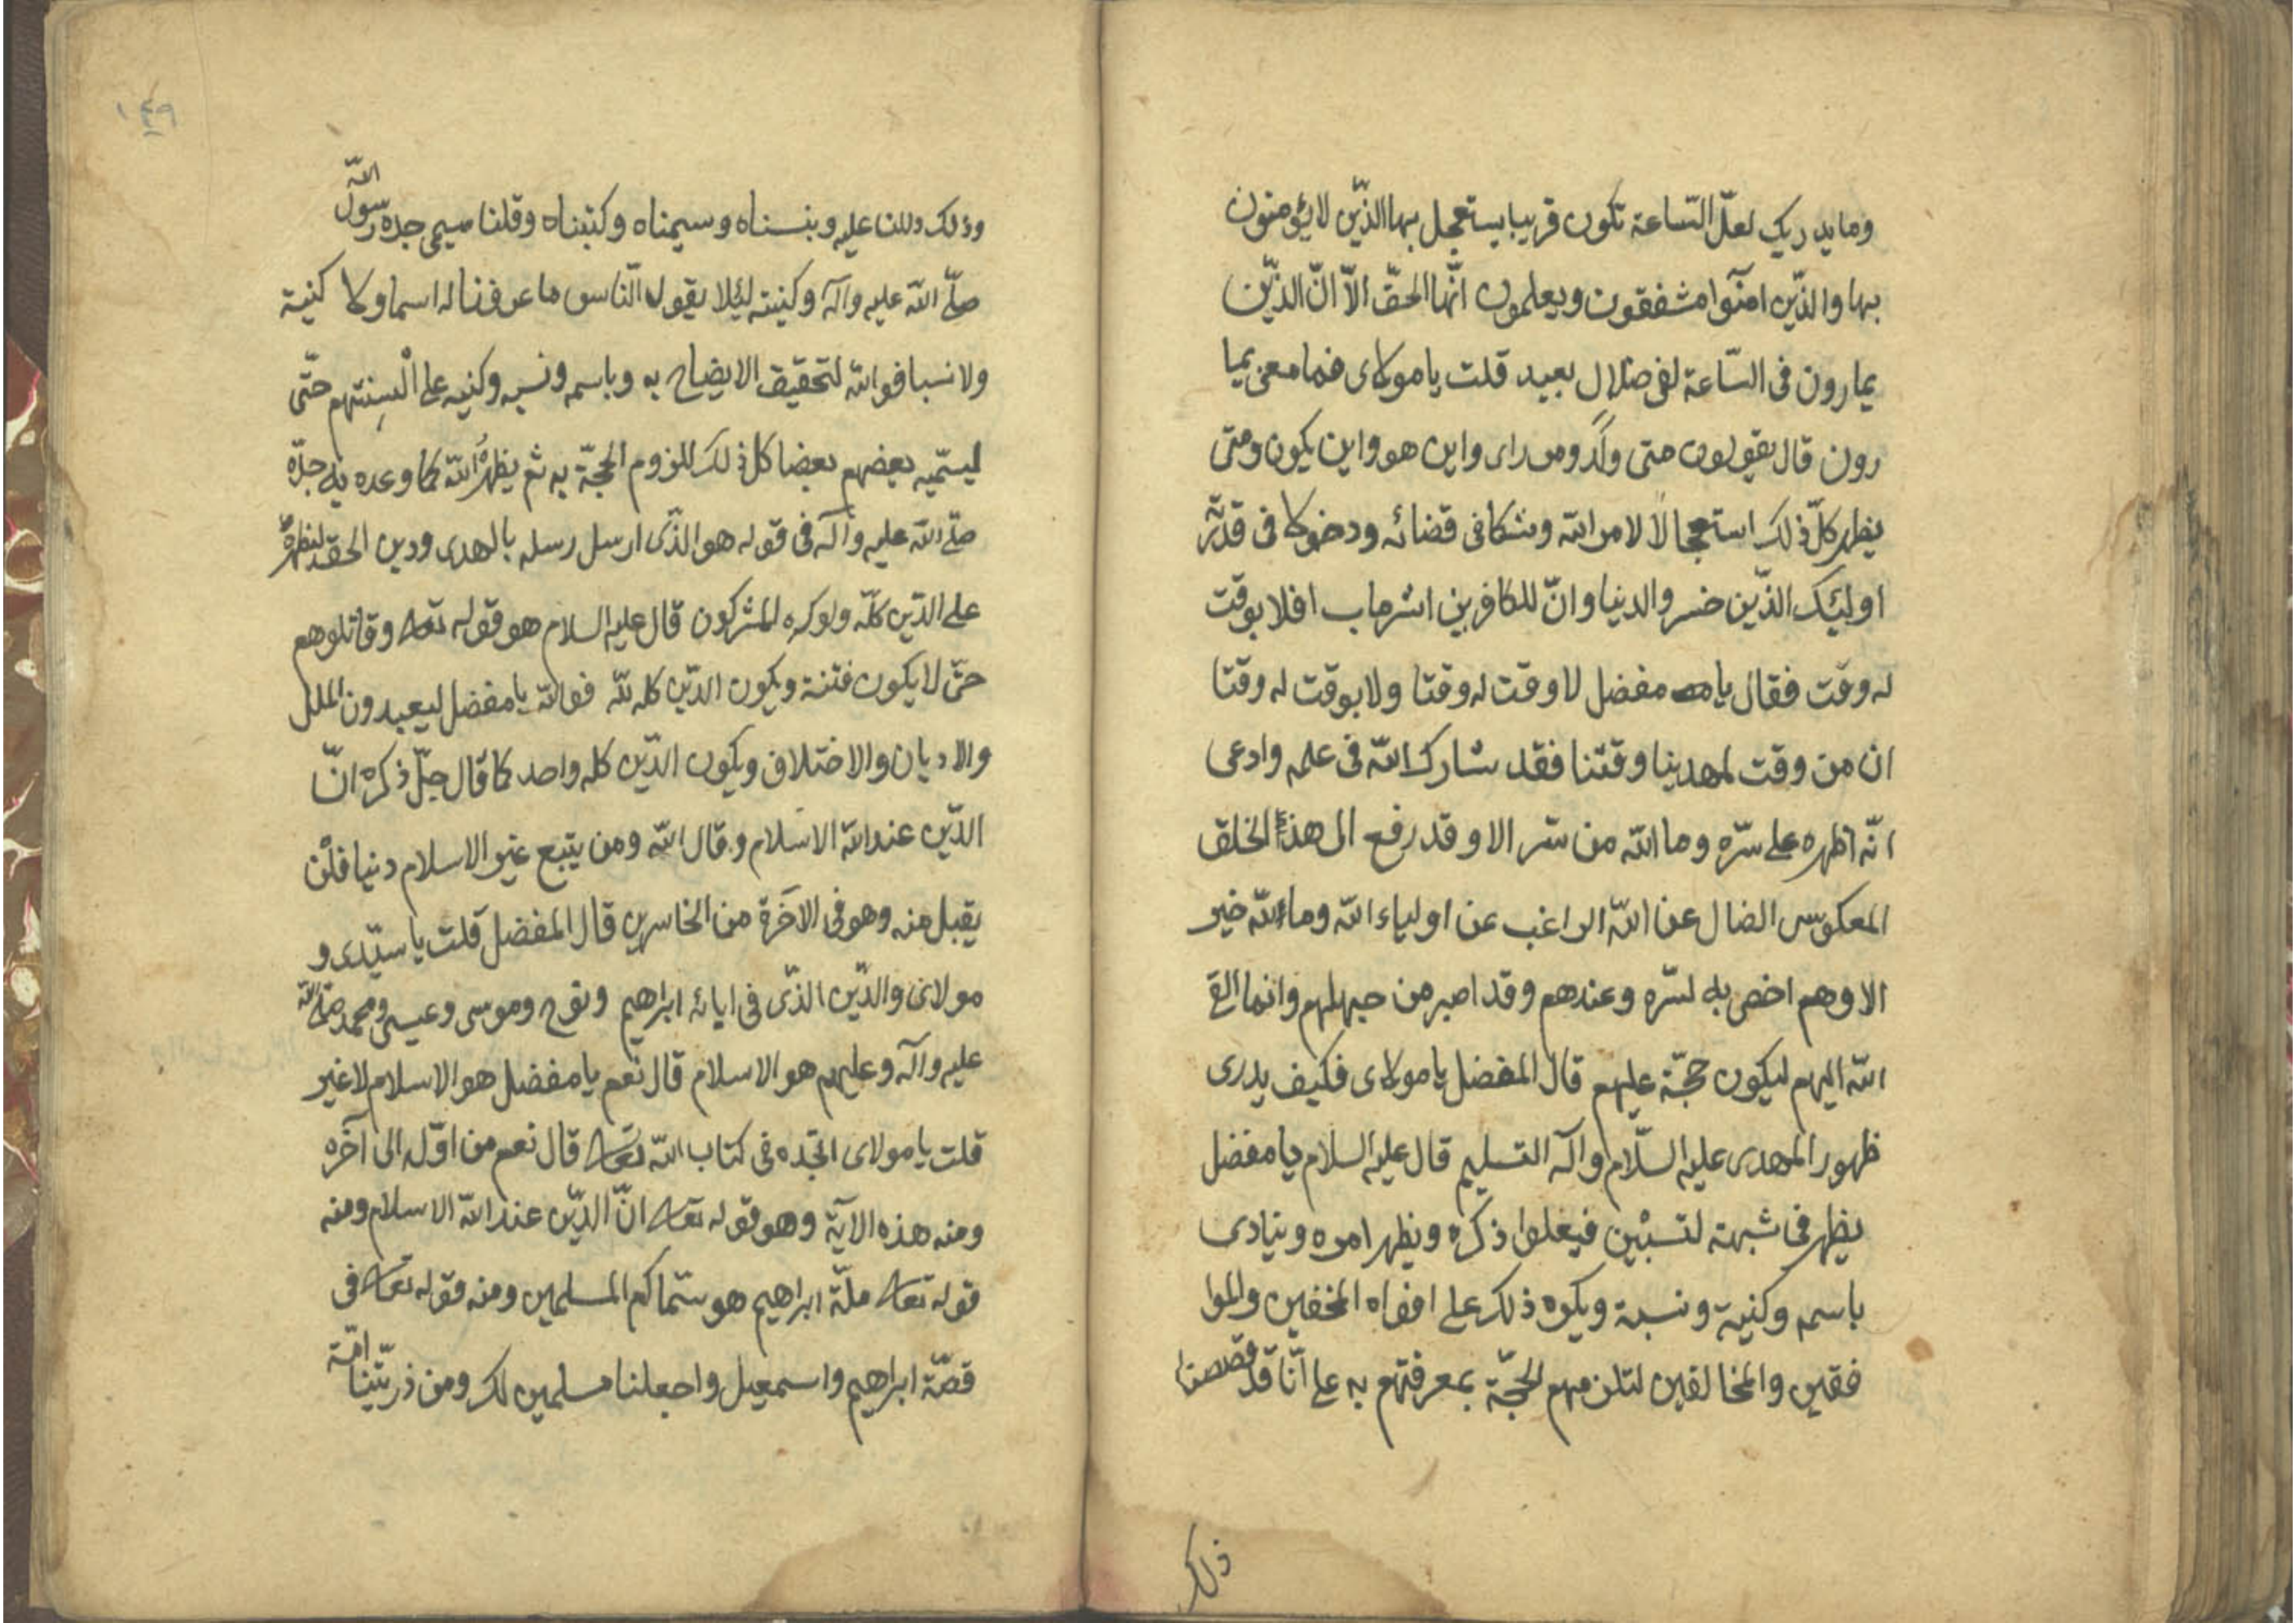 وما يدريك لعلّ السّاعة تكون قريبا يستعجل بها الذّين لا يؤمنون
بها والذّين امنوا مشفقون ويعلمون انّها الحقّ الاّ انّ الذّين
يمارون فى السّاعة لفى ضلال بعيد قلت يا مولاى فما معنى يما
رون قال يقولون متى ولد ومن راى واين هو واين يكون ومتى
يظهر كلّ ذلك استعجالا لامر الله وشكا فى قضائه ودخولا فى قدرته
اوليئك الذّين خسروا الدنيا وانّ للكافرين اشر ماب افلا يوقت
له وقت فقال يا مفضل لا وقت له وقتا ولا يوقت له وقتا
ان من وقت لمهدينا وقتنا فقد شارك الله فى علمه وادعى
انّه اظهره على سرّه وما الله من سر الا وقد رفع الى هذا الخلق
المعكوس الضال عن الله الراغب عن اولياء الله وما لله خير
الا وهم اخص به لسّره وعندهم وقد اصبر من جهلهم وانما القى
الله اليهم ليكون حجّة عليهم قال المفضل يا مولاى فكيف يدرى
ظهور المهدى عليه السّلام وآله التسليم قال عليه السلام يا مفضل
يظهر فى شبهة لتسبين فيعلوا ذكره ويظهر امره وينادى
باسمه وكنيته ونسبه ويكوه ذلك على افواه المخفين والموا
فقين والمخالفين لتلزمهم الحجّة بمعرفتهم به على انّا قد قصصنا
ذلك
١٤٩
وذلك دللنا عليه وبنسناه وسيمناه وكتبناه وقلنا سمى جده رسول الله
صلّى الله عليه وآله وكنيته ليئلا يقول النّاس ما عرفنا له اسما ولا كنية
ولا نسبا فوالله لتحقيق الايضاح به وباسمه ونسبه وكنيه على الْسِنتهم حتّى
ليسمّيه بعضهم بعضا كل ذلك للزوم الحجّة به ثم يظهره الله كما وعده به جدّه
صلّى الله عليه وآله فى قوله هو الذّى ارسل رسله بالهدى ودين الحق ليظهره
على الدّين كلّه ولو كره المشركون قال عليه السلام هو قوله تعالى وقاتلوهم
حتّى لا يكون فتنة ويكون الدّين كله لله فوالله يا مفضل ليعيدون الملل
والاديان والاختلاف ويكون الدّين كله واحد كما قال جلّ ذكره انّ
الدّين عند الله الاسلام وقال الله ومن يتبع غير الاسلام دنيا فلْن
يقبل منه وهو فى الآخرة من الخاسرين قال المفضل قلت يا سيّدى و
مولاى والدّين الذّى فى ايائه ابراهيم ونوح وموسى وعيسى ومحمد صلى الله
عليه وآله وعليهم هو الاسلام قال نعم يا مفضل هو الاسلام لا غير
قلت يا مولاى اتجده فى كتاب الله تعالى قال نعم من اوّله الى آخره
ومنه هذه الآية وهو قوله تعالى انّ الدّين عند الله الاسلام ومنه
قوله تعالى ملّة ابراهيم هو سمّاكم المسلمين ومنه قوله تعالى فى
قصّة ابراهيم واسمعيل واجعلنا مسلمين لك ومن ذريّتنا امّة